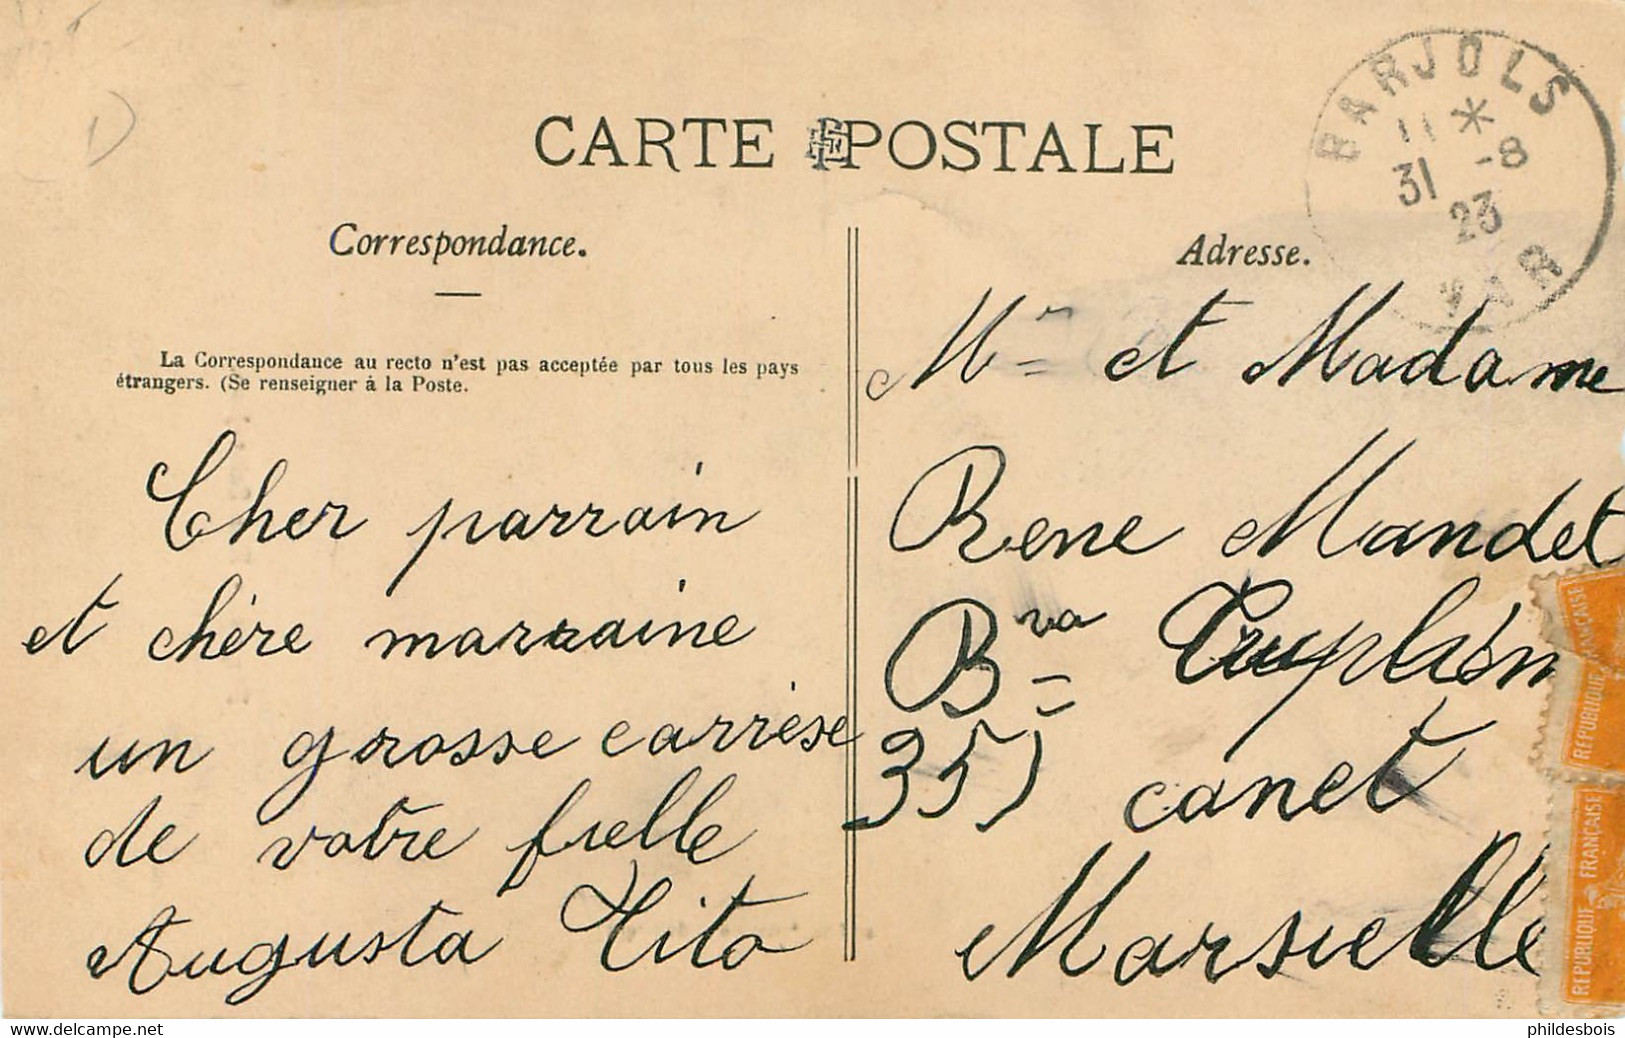 CARTE POSTALE
BARJOLS
11 *
31 -8
23
VAR
Correspondance.
La Correspondance au recto n'est pas acceptée par tous les pays
étrangers. (Se renseigner à la Poste.
Cher parrain
et chère marraine
un grosse carrèse
de votre fielle
Augusta Tito
Adresse.
Mr et Madame
Rene Mandet
Bra
35)
canet
Marsielle
REPUBLIQUE FRANÇAISE
REPUBLIQUE FRANÇAISE
www.delcampe.net
phildesbois